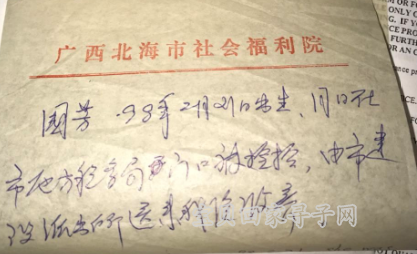 广西北海市社会福利院
国芳 98年2月21日出生、同日在
市地方税务局门口被捡拾,由市建
设派出所送来我院收养
宝贝回家寻子网